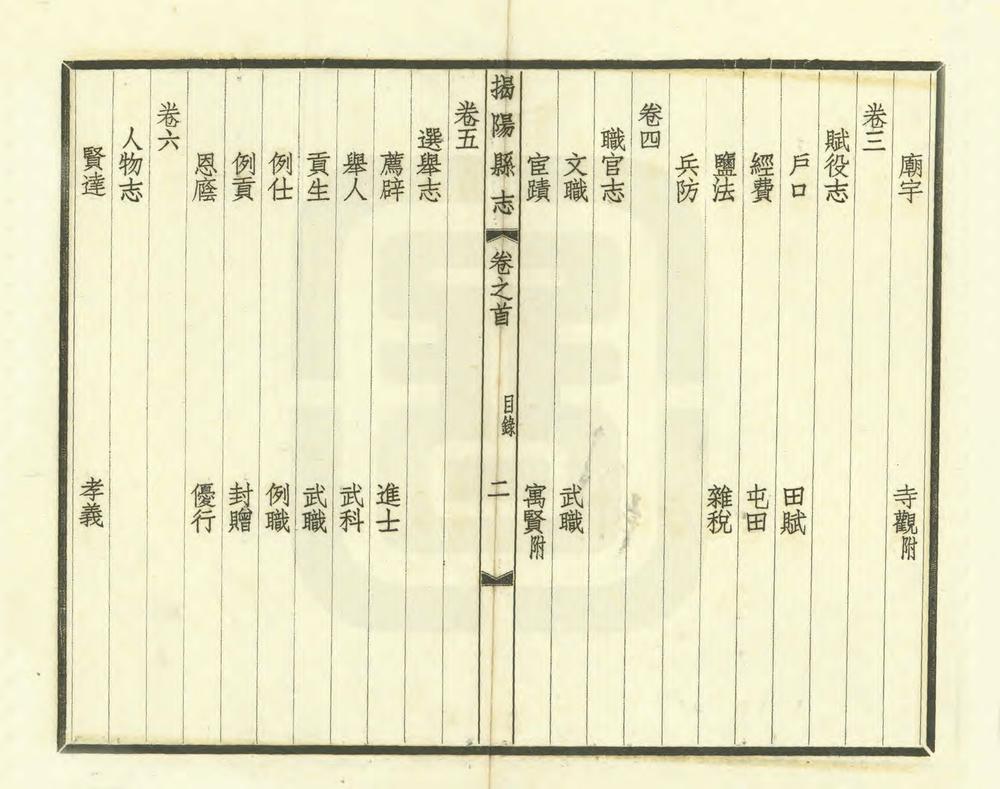 廟宇　寺觀附
卷三
賦役志
戶口　田賦
經費　屯田
鹽法　雜稅
兵防
卷四
職官志
文職　武職
宦蹟　寓賢附
揭陽縣志　卷之首　目錄　二
卷五
選舉志
薦辟　進士
舉人　武科
貢生　武職
例仕　例職
例貢　封贈
恩廕　優行
卷六
人物志
賢達　孝義